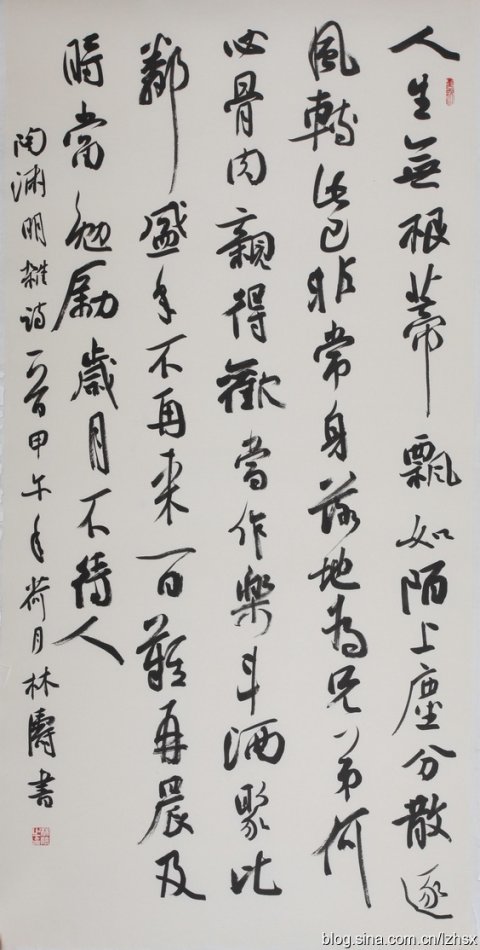 人生無根蒂飄如陌上塵分散逐
風轉此已非常身落地為兄弟何
必骨肉親得歡當作樂斗酒聚比
鄰盛年不再来一日難再晨及
時當勉勵歲月不待人
陶渊明雜诗一首甲午年荷月林濤書
blog.sina.com.cn/lzhsx